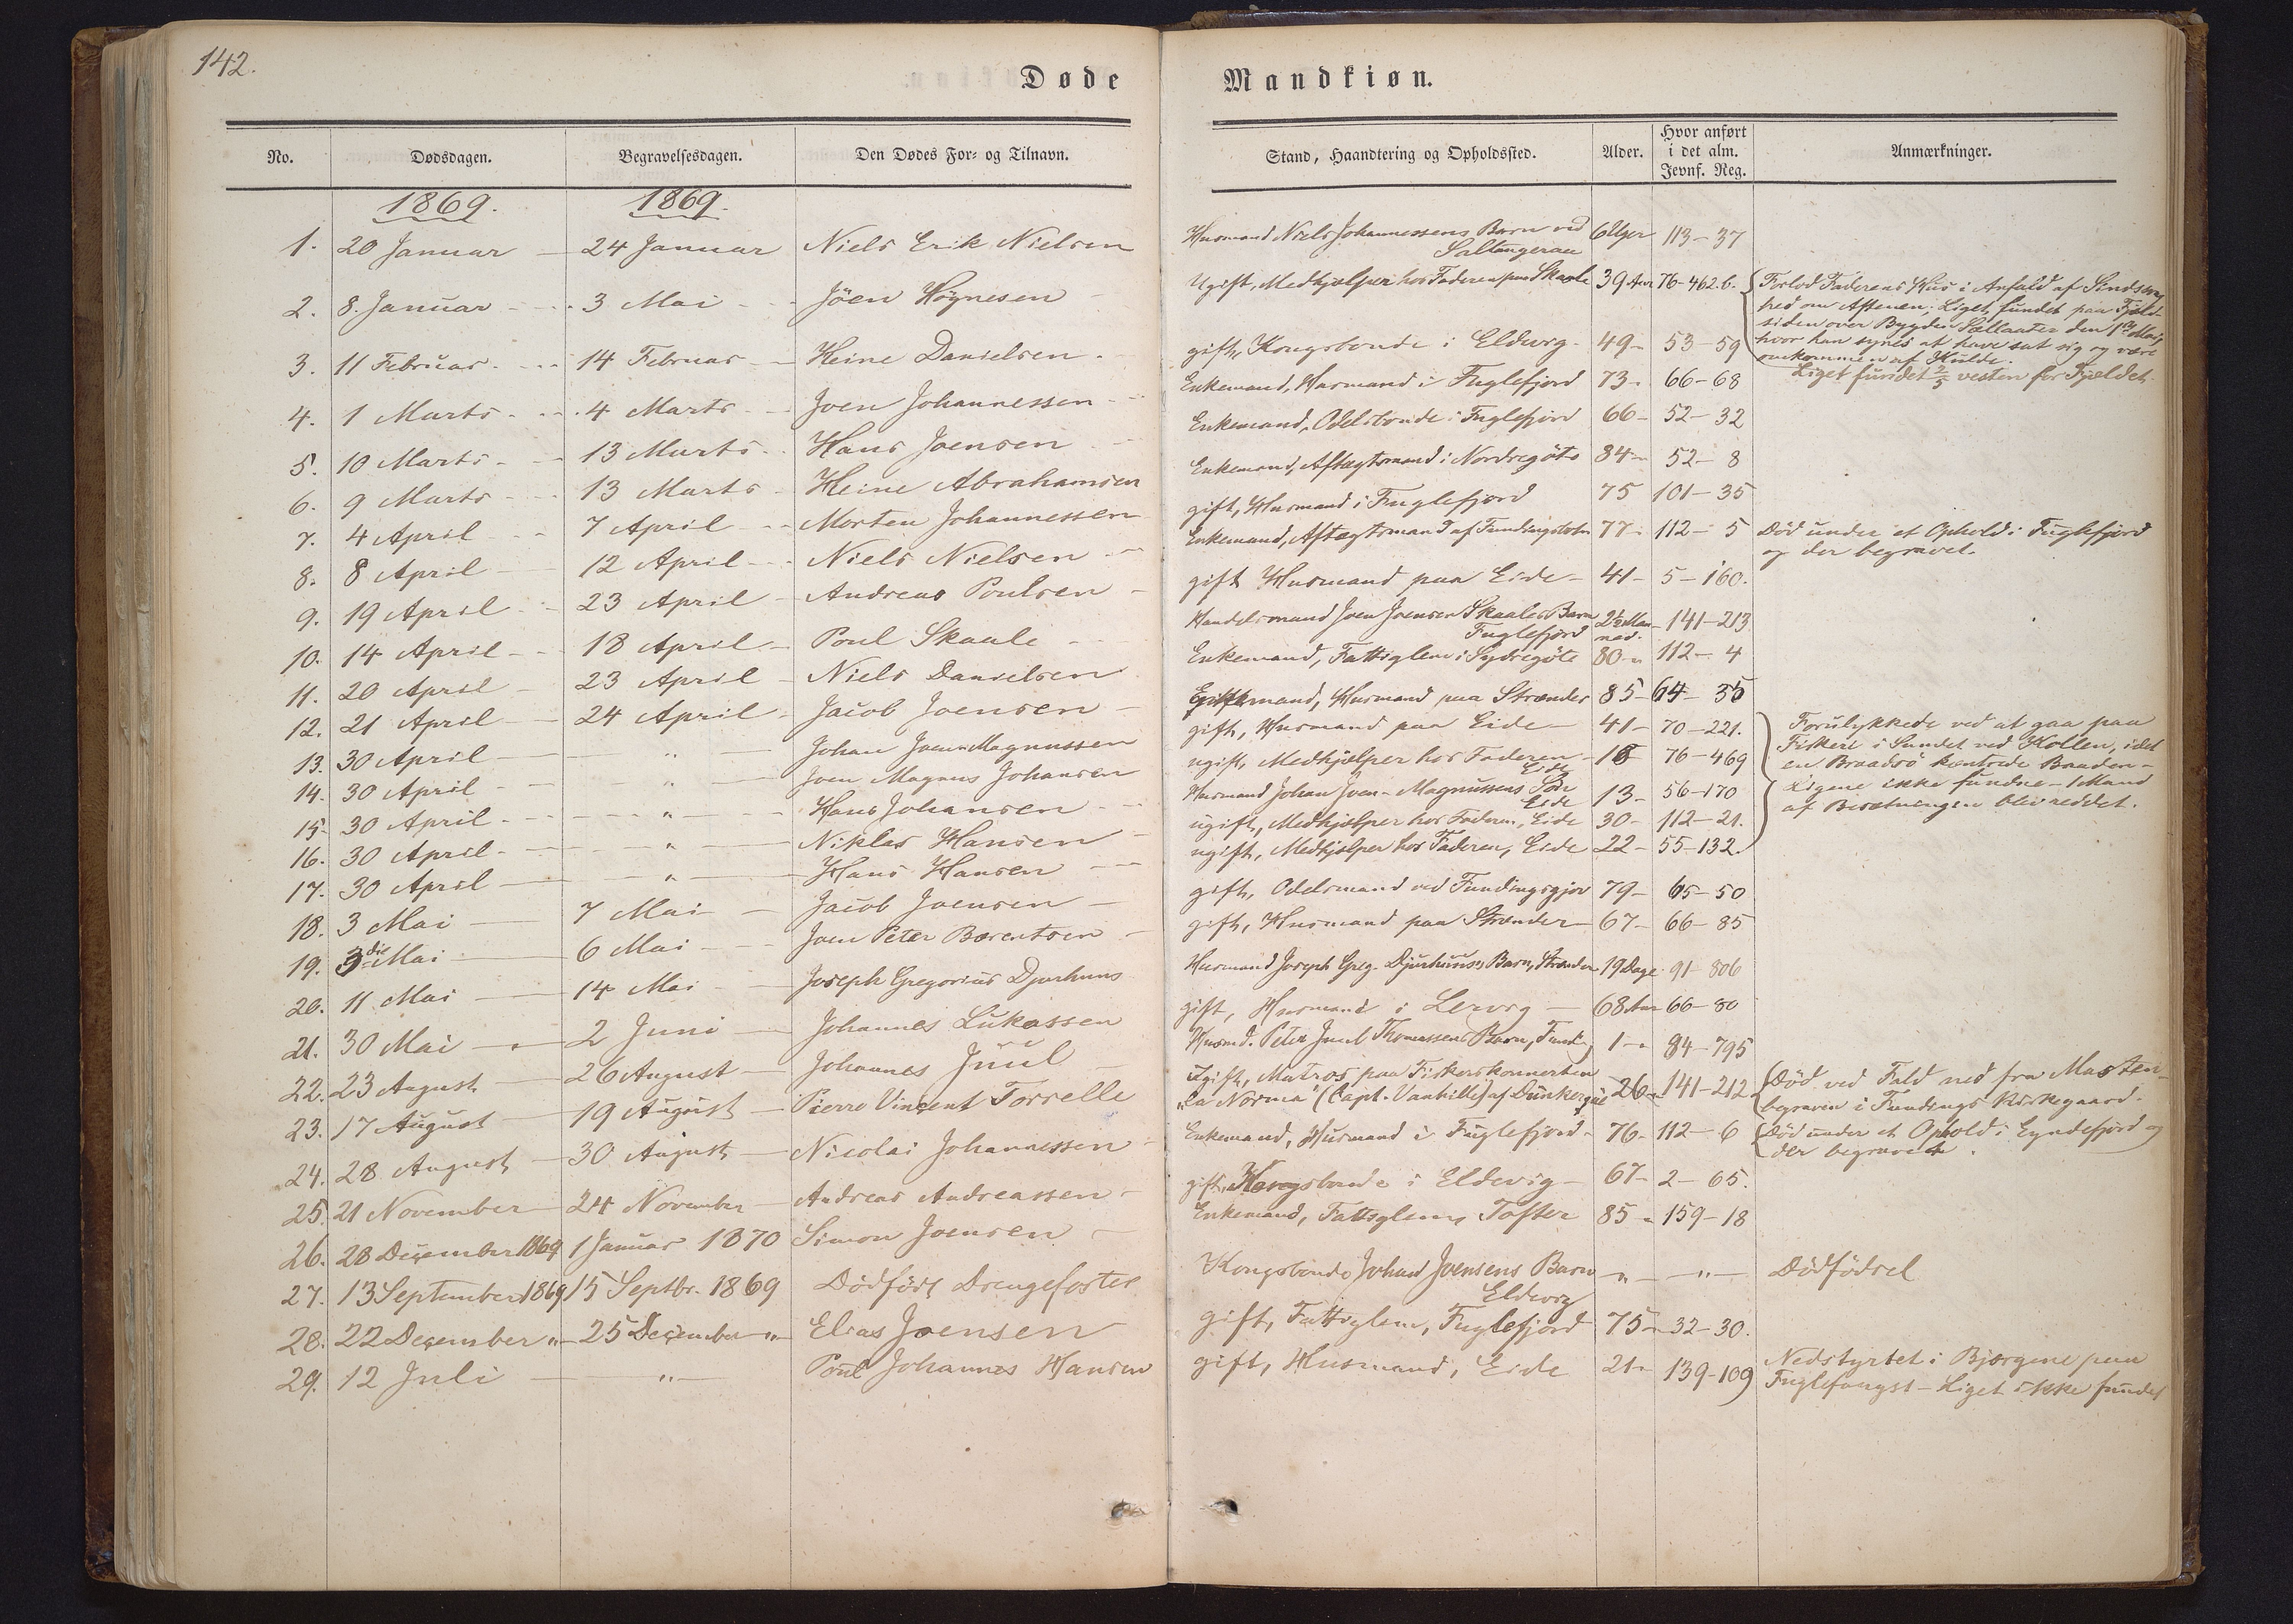 142.
Døde Mandkiøn.
No. Dødsdagen. Begravelsesdagen. Den Dødes For- og Tilnavn. Stand, Haandtering og Opholdssted. Alder. Hvor anført i det alm. Jevnf. Reg. Anmærkninger.
1869. 1869.
1. 20 Januar 24 Januar Niels Erik Nielsen Husmand Niels Johannessens Barn ved 6 Uger 113-37
Saltangeraa
2. 8. Januar 3 Mai Jóen Högnesen Ugift, Medhjælper hos Faderen paa Skaale 39 Aar 76-462.b. Forlod Faderens Hus i Anfald af Sindssvag
hed om Aftenen; Liget fundet paa Fjeld-
siden over Bygden Sellaater den 1ste Mai,
hvor han synes at have sat sig og være
omkommen af Kulde.
Liget fundet 2/5 vesten for Fjeldet.
3. 11 Februar 14 Februar Heine Danielsen gift, Kongsbonde i Eldevig 49 53-59
4. 1 Marts 4 Marts Joen Johannessen Enkemand, Husmand i Fuglefjord 73 66-68
5. 10 Marts 13 Marts Hans Joensen Enkemand, Odelsbonde i Fuglefjord 66 52-32
6. 9 Marts 13 Marts Heine Abrahamsen Enkemand, Aftægtsmand i Nordregöte 84 52-8
7. 4 April 7 April Morten Johannessen gift, Husmand i Fuglefjord 75 101-35
8. 8 April 12 April Niels Nielsen Enkemand, Aftægtsmand af Fundingsbotn 77 112-5 Död under et Ophold i Fuglefjord
og der begravet.
9. 19 April 23 April Andreas Poulsen gift Husmand paa Eide 41 5-160.
10. 14 April 18 April Poul Skaale Handelsmand Joen Joensen Skaales Barn 2½ Maa- 141-213
Fuglefjord ned.
11. 20 April 23 April Niels Danielsen Enkemand, Fattiglem i Sydregöte 80 " 112-4
12. 21 April 24 April Jacob Joensen Husmand paa Strænder 85 64-35
13. 30 April " Johan Joen-Magnussen gift, Husmand paa Eide 41 70-221. Forulykkede ved at gaa paa
Fiskeri i Sundet ved Kollen, idet
en Braadsö kæntrede Baaden-
Ligene ikke fundne- 1 Mand
af Besætningen blev reddet.
14. 30 April " Joen Magnus Johansen ugift, Medhjælper hos Faderen 76-469
Eide
15. 30 April " Hans Johansen Husmand Johan Joen-Magnussens Sön 13 56-170
Eide
16. 30 April " Niklas Hansen ugift, Medhjælper hos Faderen, Eide 30 112-21.
17. 30 April " Hans Hansen ugift, Medhjælper hos Faderen, Eide 22 55-132.
18. 3 Mai 7 Mai Jacob Joensen gift, Odelsmand ved Fundingsgjov 79 65-50
19. 3die Mai 6 Mai Joen Peter Barentsen gift, Husmand paa Strænder 67 66-85
20. 11 Mai 14 Mai Joseph Gregorius Djurhuus Husmand Joseph Greg. Djurhuuses Barn, Strænder 19 Dage 91-806
21. 30 Mai 2 Juni Johannes Lukassen gift, Husmand i Lervig 68 Aar 66-80
22. 23 August 26 August Johannes Juul Husmd. Peter Juul Thomassens Barn, Fund. 1 " 84-795
23. 17 August 19 August Pierre Vincent Torrelle Ugift, Matros paa Fiskerskonnerten
"La Norma" (Capt. Vanhille) af Dunkerque 26 141-212 Död ved Fald ned fra Masten-
begraven i Fundings Kirkegaard.
24. 28 August 30 August Nicolai Johannessen Enkemand, Husmand i Fuglefjord 76 112-6 Död under et Ophold i Eyndefjord og
der begravet.
25. 21 November 24 November Andreas Andreassen gift, Kongsbonde i Eldevig 67 2-65.
26. 28 December 1869 1 Januar 1870 Simon Joensen Enkemand, Fattiglem, Tofter 85 " 159-18
27. 13 September 1869 15 Septbr. 1869 Dödfödt Drengefoster Kongsbonde Johan Joensens Barn " " Dödfödsel
Eldevig
28. 22 December " 25 December " Elias Joensen gift, Fattiglem, Fuglefjord 75 32-30.
29. 12 Juli " Poul Johannes Hansen gift, Husmand, Eide 21 " 139-109 Nedstyrtet i Bjergene paa
Fuglefangst- Liget ikke fundet